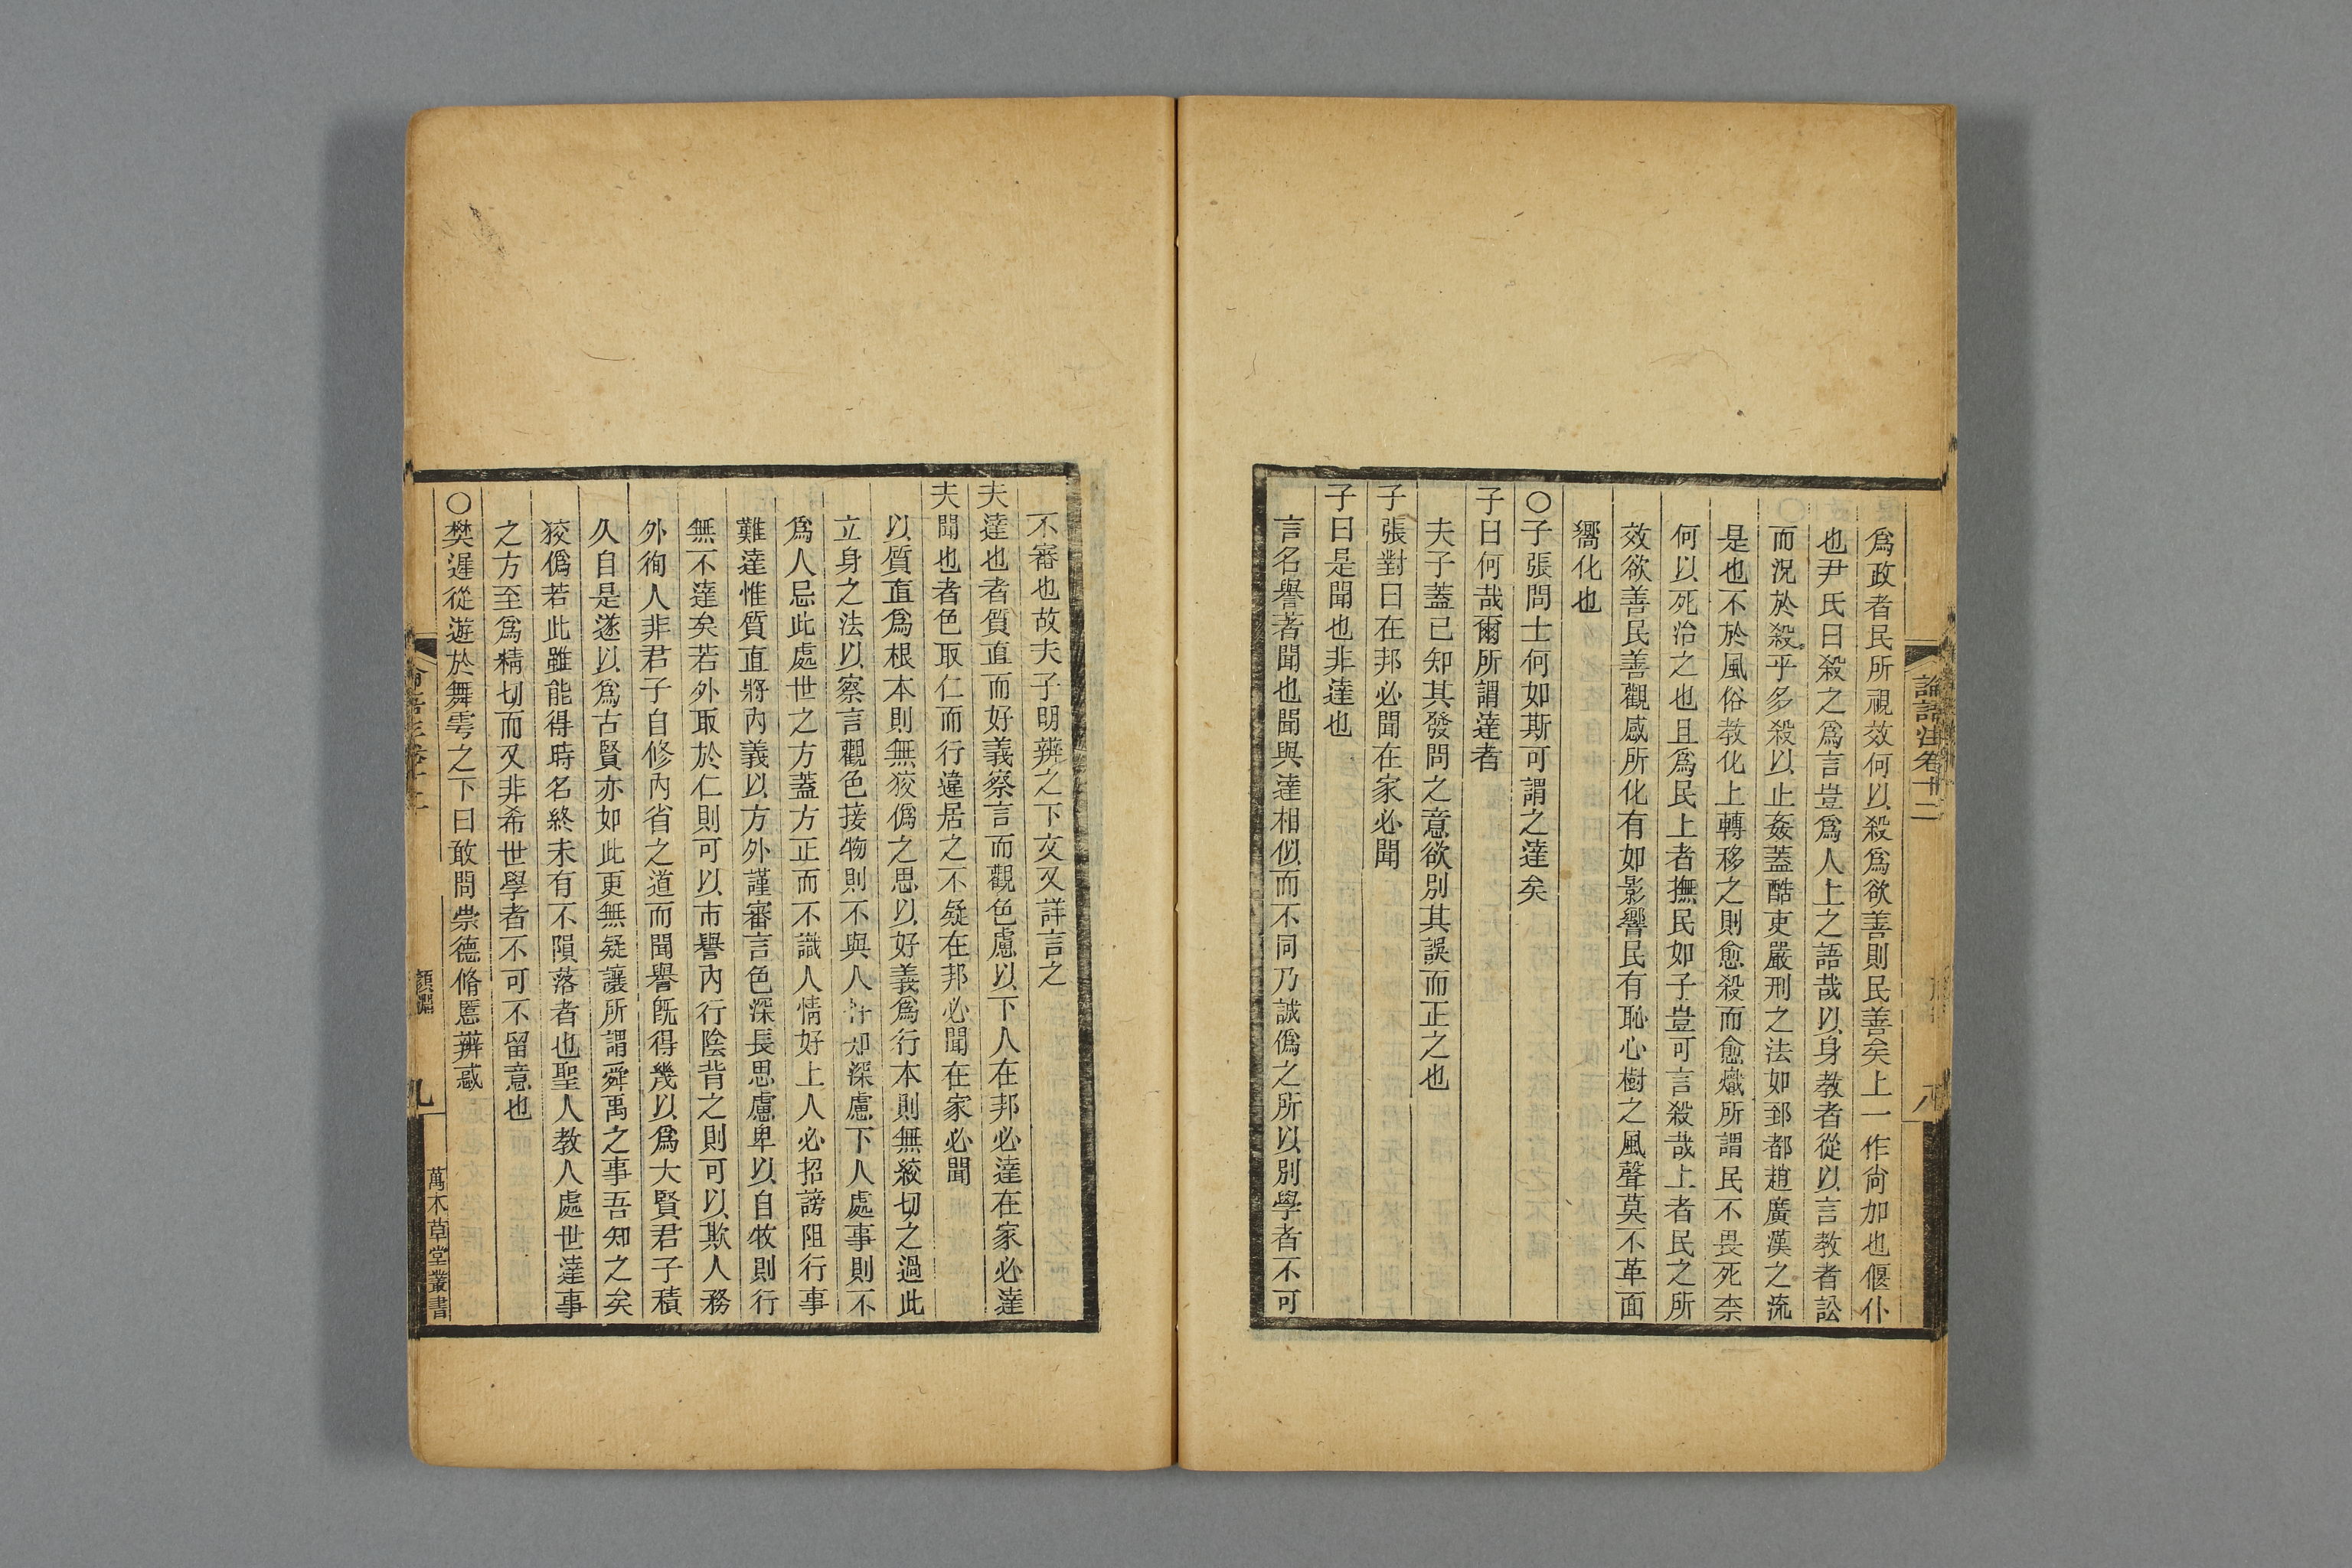 論語注卷十二
爲政者民所視效何以殺爲欲善則民善矣上一作尙加也偃仆
也尹氏曰殺之爲言豈爲人上之語哉以身教者從以言教者訟
而況於殺乎多殺以止姦蓋酷吏嚴刑之法如郅都趙廣漢之流
是也不於風俗教化上轉移之則愈殺而愈熾所謂民不畏死柰
何以死治之也且爲民上者撫民如子豈可言殺哉上者民之所
效欲善民善觀感所化有如影響民有恥心樹之風聲莫不革面
嚮化也
〇子張問士何如斯可謂之達矣
子曰何哉爾所謂達者
夫子蓋已知其發問之意欲別其誤而正之也
子張對曰在邦必聞在家必聞
子曰是聞也非達也
言名譽著聞也聞與達相似而不同乃誠僞之所以別學者不可
不審也故夫子明辨之下文又詳言之
夫達也者質直而好義察言而觀色慮以下人在邦必達在家必達
夫聞也者色取仁而行違居之不疑在邦必聞在家必聞
以質直爲根本則無狡僞之思以好義爲行本則無絞切之過此
立身之法以察言觀色接物則不與人忤却深慮下人處事則不
爲人忌此處世之方蓋方正而不識人情好上人必招謗阻行事
難達惟質直將內義以方外謹審言色深長思慮卑以自牧則行
無不達矣若外取於仁則可以市譽內行陰背之則可以欺人務
外徇人非君子自修內省之道而聞譽既得幾以爲大賢君子積
久自是遂以爲古賢亦如此更無疑讓所謂舜禹之事吾知之矣
狡僞若此雖能得時名終未有不隕落者也聖人教人處世達事
之方至爲精切而又非希世學者不可不留意也
〇樊遲從遊於舞雩之下曰敢問崇德脩慝辨惑
顏淵
九
萬木草堂叢書